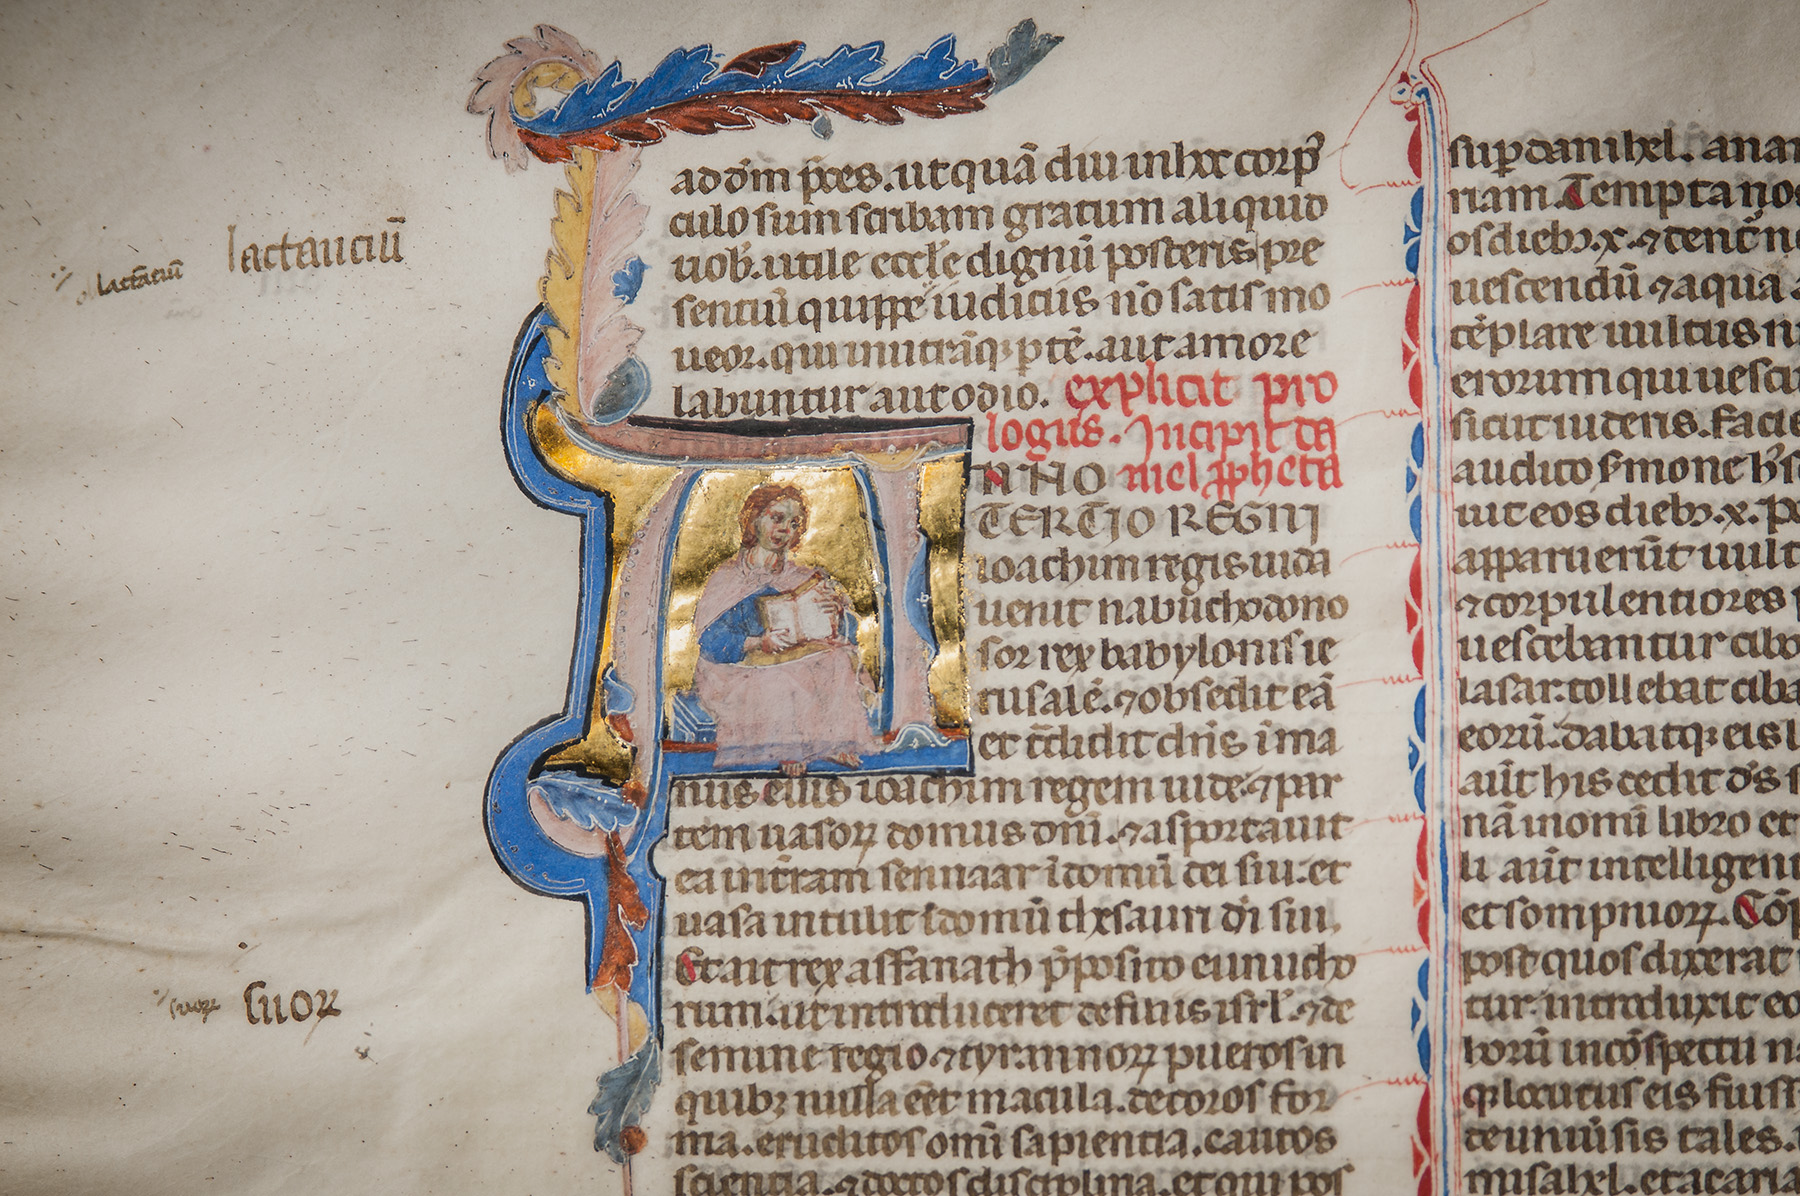 ad dñm p̄ces. ut quã diu in hoc corpͻ̃
culo sum scribam gratum aliquid
uob̾. utile eccl̾e dignũ posteris pre
sentiũ quippe iudiciis nõ satis mo
ueor. qui in utrãq; ptẽ. aut amore
labuntur aut odio. explicit pro
logus. Incipit da
niel ꝓpheta
ANNO
TERTIO REGNI
ioachim regis iuda
uenit nabuchodono
sor rex babylonis ie
rusalẽ. ⁊ obsedit eã
et t̃didit dñs ĩ ma
nus eius ioachim regem iude. ⁊ par
tem uasoꝝ domus dñi. ⁊ asportauit
ea in t̃ram sennaar ĩ domũ dei sui. et
uasa intulit ĩ domũ thesauri di̾ sui.
Et ait rex asfanath p̃posito eunucho
rum. ut introduceret de filiis isrl̾. ⁊ de
semine regio ⁊ tyrannoꝝ pueros in
quibꝫ nulla eẽt macula. decoros for
ma. eruditos omĩ sapientia. cautos
scientia. ⁊ doctos disciplina. et qui pos
lactanciũ
lactãciũ
suoꝝ
suoꝝ
sup danihel. anan
riam. Tempta nos
os diebꝫ. x. ⁊ dent̃ n
uescendũ ⁊ aqua a
tẽplare uultus n
erorum qui uescu
sicut uideris. facie
audito s̾mone h̾s
uit eos diebꝫ. x. P
apparuerũt uult
⁊ corpulentiores p
uescebantur cibo
lasar. tollebat ciba
eorũ. dabatq; eis l
aũt his dedit d̾s s
nã in omĩ libro et
li aũt intelligent
et sompnioꝝ. Cõp
post quos dixerat
tur. introduxit eo
horũ in cõspectu n
q̾ locutus eis fuiss
te uniũsis tales.
misahel. et azaria